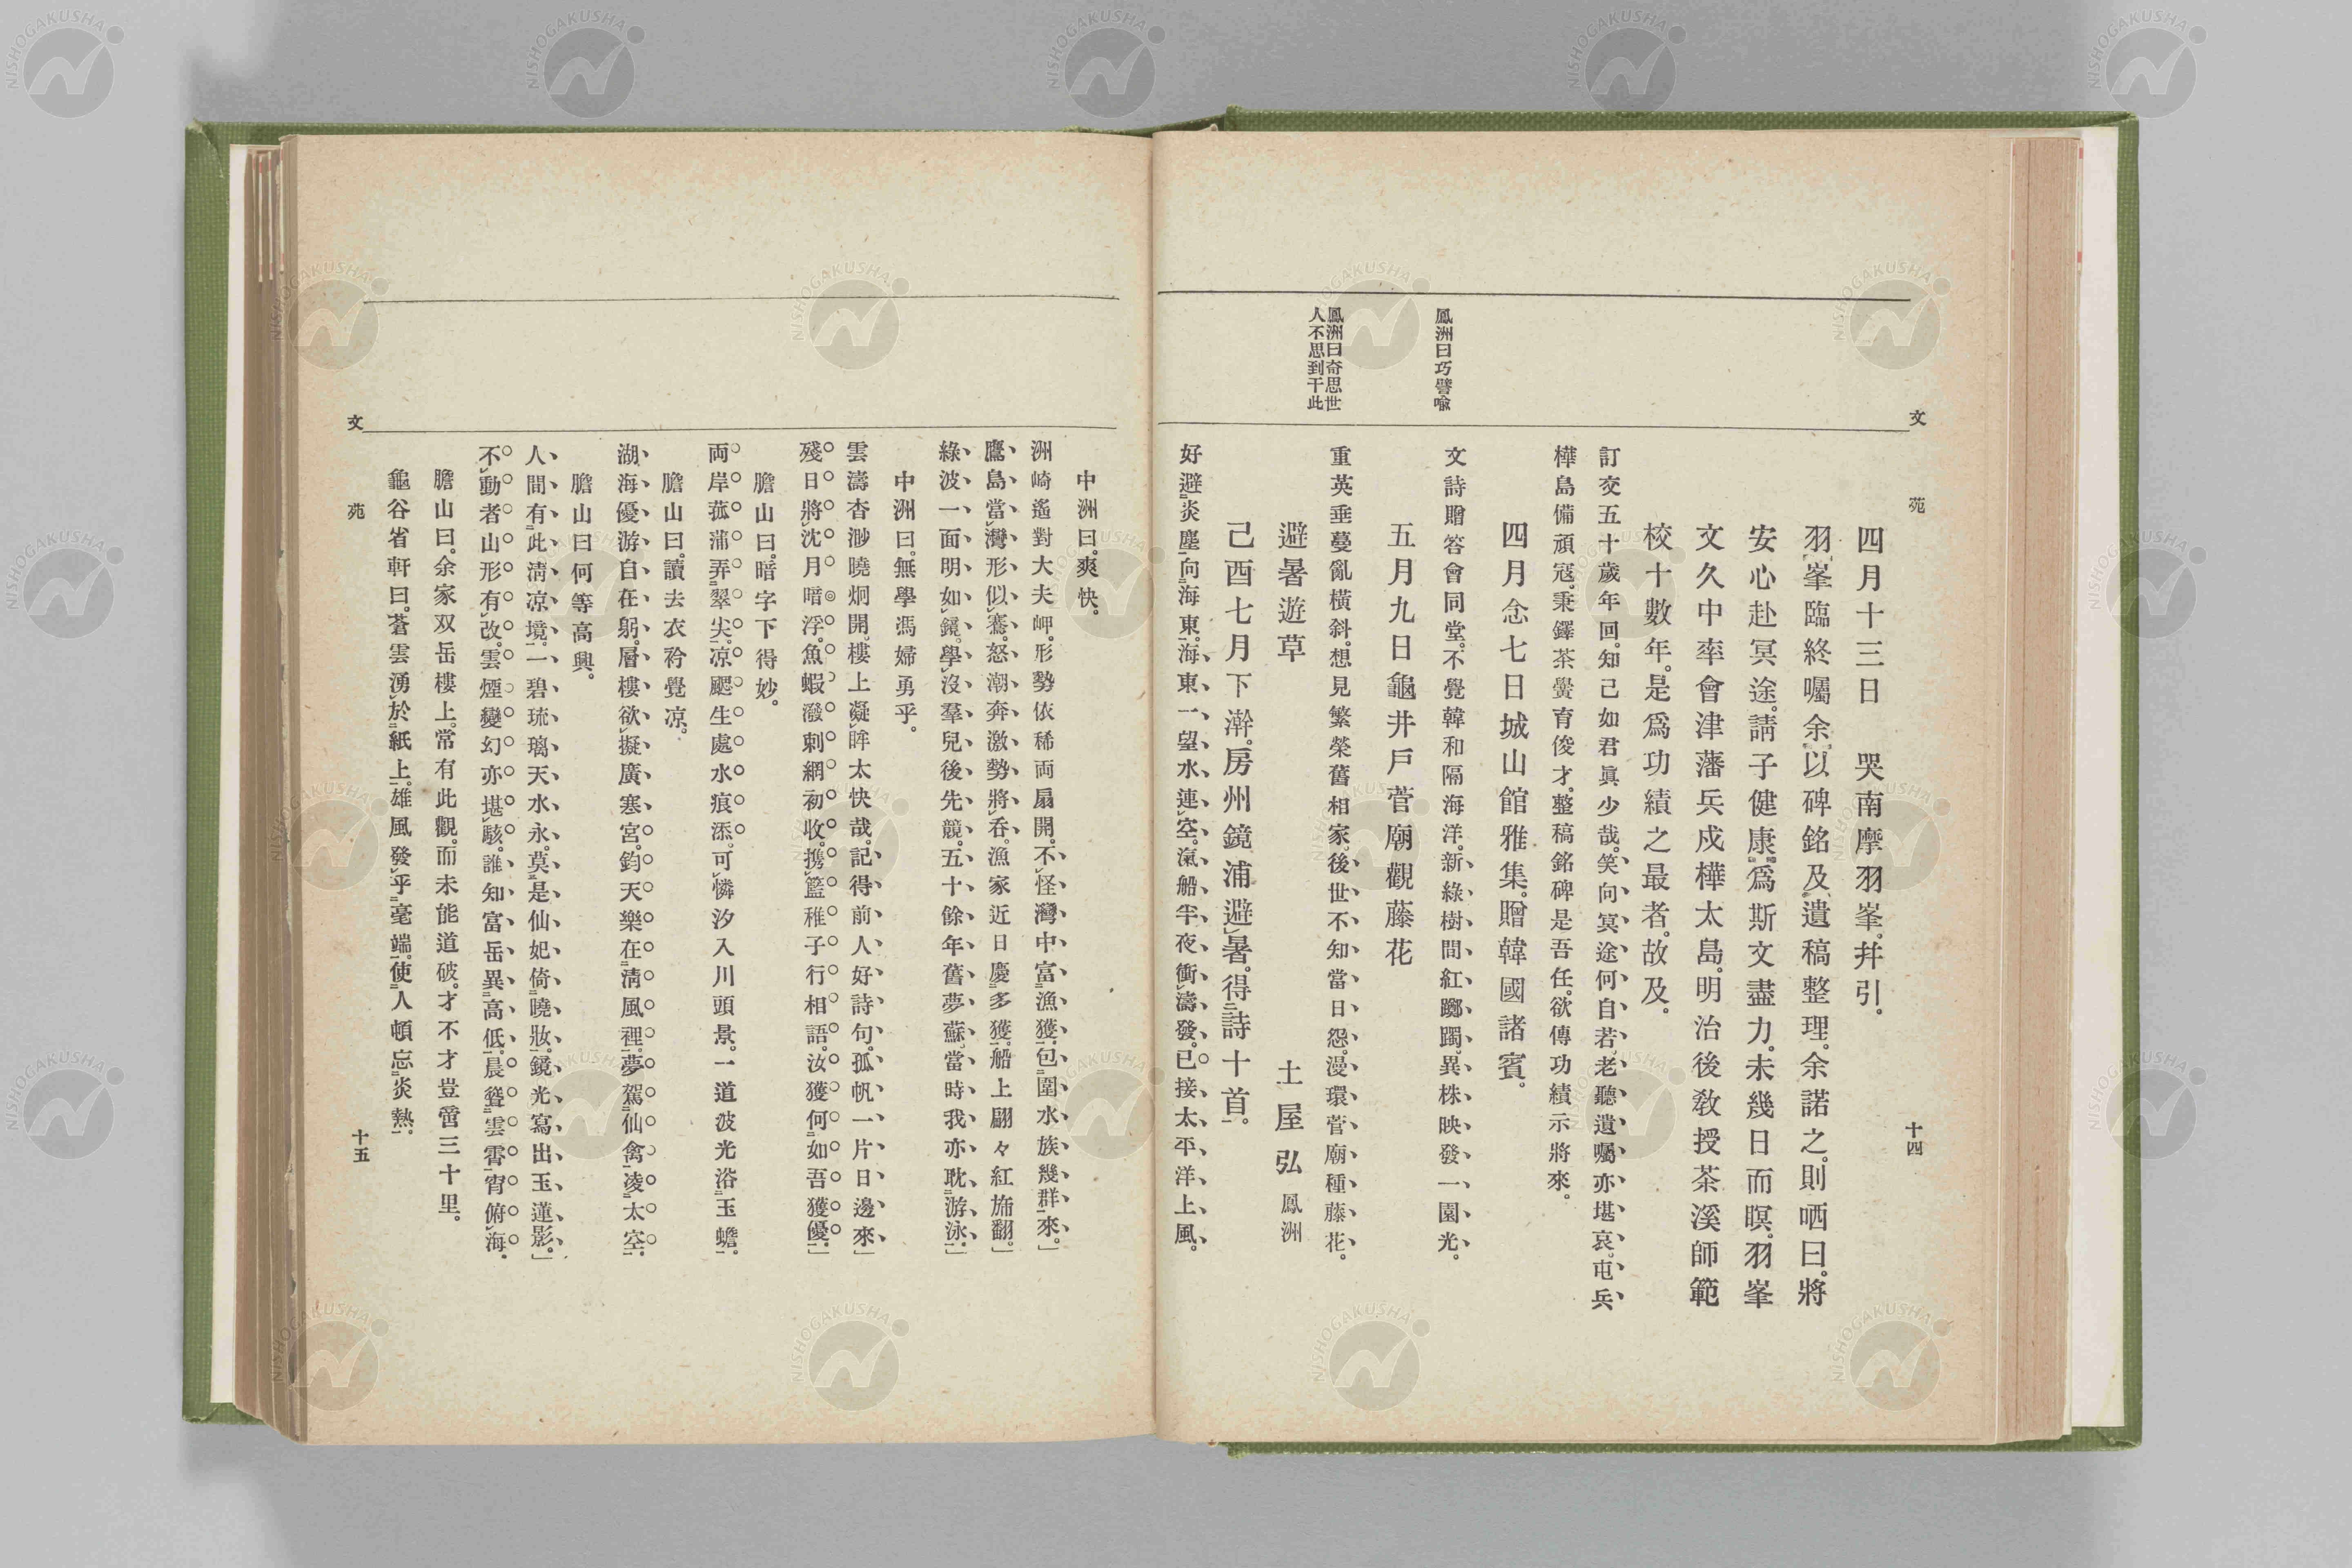 文 苑 十四
四月十三日 哭南摩羽峯。幷引。
羽峯臨終囑余以碑銘及遺稿整理。余諾之。則哂曰。將
安心赴冥途。請子健康。爲斯文盡力。未幾日而瞑。羽峯
文久中率會津藩兵戍樺太島。明治後敎授茶溪師範
校十數年。是爲功績之最者。故及。
訂交五十歲年回。知己如君眞少哉。笑向冥途何自若。老聽遺囑亦堪哀。屯兵
樺島備頑寇。秉鐸茶黌育俊才。整稿銘碑是吾任。欲傳功績示將來。
四月念七日城山館雅集。贈韓國諸賓。
鳳洲曰巧譬喩
文詩贈答會同堂。不覺韓和隔海洋。新綠樹間紅躑躅。異株映發一園光。
五月九日龜井戶菅廟觀藤花
鳳洲曰奇思世
人不思到于此
重英垂蔓亂橫斜。想見繁榮舊相家。後世不知當日怨。漫環菅廟種藤花。
避暑遊草 土屋弘 鳳洲
己酉七月下澣。房州鏡浦避暑。得詩十首。
好避炎塵向海東。海東一望水連空。滊船半夜衝濤發。已接太平洋上風。
中洲曰。爽快。
洲崎遙對大夫岬。形勢依稀両扇開。不怪灣中富漁獲。包圍水族幾群來。」
鷹島當灣形似鶱。怒潮奔激勢將呑。漁家近日慶多獲。船上翩々紅旆翻。」
綠波一面明如鏡。學沒羣兒後先競。五十餘年舊夢蘇。當時我亦耽游泳。」
中洲曰。無學馮婦勇乎。
雲濤杳渺曉烱開。樓上凝眸太快哉。記得前人好詩句。孤帆一片日邊來。」
殘日將沈月暗浮。魚蝦潑剌網初收。携籃稚子行相語。汝獲何如吾獲優。」
膽山曰。暗字下得妙。
両岸菰蒲弄翠尖。凉颸生處水痕添。可憐汐入川頭景。一道波光浴玉蟾。
膽山曰。讀去衣衿覺凉。
湖海優游自在躬。層樓欲擬廣寒宮。鈞天樂在淸風裡。夢駕仙禽凌太空。
膽山曰何等高興。
人間有此淸凉境。一碧琉璃天水永。莫是仙妃倚曉妝。鏡光寫出玉蓮影。」
不動者山形有改。雲煙變幻亦堪駭。誰知富岳異高低。晨聳雲霄宵俯海。
膽山曰。余家双岳樓上。常有此觀。而未能道破。才不才豈啻三十里。
龜谷省軒曰。蒼雲湧於紙上。雄風發乎毫端。使人頓忘炎熱。
文 苑 十五